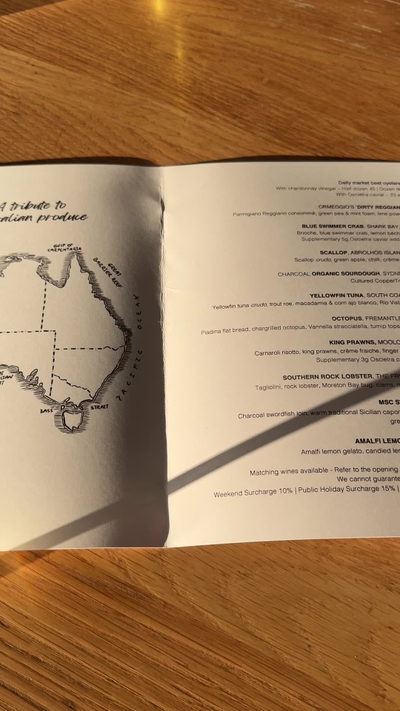 A tribute to
alian produce
GULF OF
CARPENTARIA
GREAT
BARRIER REEF
PACIFIC OCEAN
BASS STRAIT
Daily market best oysters
With chardonnay vinegar - Half dozen 45 | Dozen
With Oscietra caviar -
ORMEGGIO'S 'DIRTY REGGIAN
Parmigiano Reggiano consommé, green pea & mint foam, lime pow
BLUE SWIMMER CRAB, SHARK BAY,
Brioche, blue swimmer crab, lemon
Supplementary 5g Oscietra caviar
SCALLOP, ABROLHOS ISLAN
Scallop crudo, green apple, chilli, crème
CHARCOAL ORGANIC SOURDOUGH, SYDNE
Cultured CopperT
YELLOWFIN TUNA, SOUTH CO
Yellowfin tuna crudo, trout roe, macadamia & corn ajo blanco, Rio Vis
OCTOPUS, FREMANTL
Piadina flat bread, chargrilled octopus, Vannella stracciatella, turnip tops
KING PRAWNS, MOOLO
Carnaroli risotto, king prawns, crème fraiche, finger
Supplementary 3g Oscietra c
SOUTHERN ROCK LOBSTER, THE
Tagliolini, rock lobster, Moreton Bay bug, clams,
MSC S
Charcoal swordfish loin, warm traditional Sicilian capo
gre
AMALFI LEMO
Amalfi lemon gelato, candied le
Matching wines available - Refer to the opening
We cannot guarante
Weekend Surcharge 10% | Public Holiday Surcharge 15% |